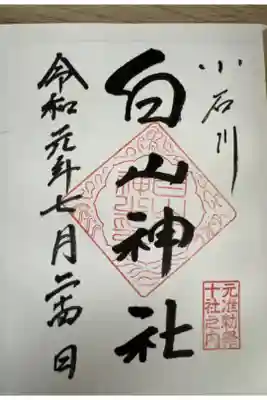 小石川
白山神社
元准勅祭
十社之内
令和元年七月日